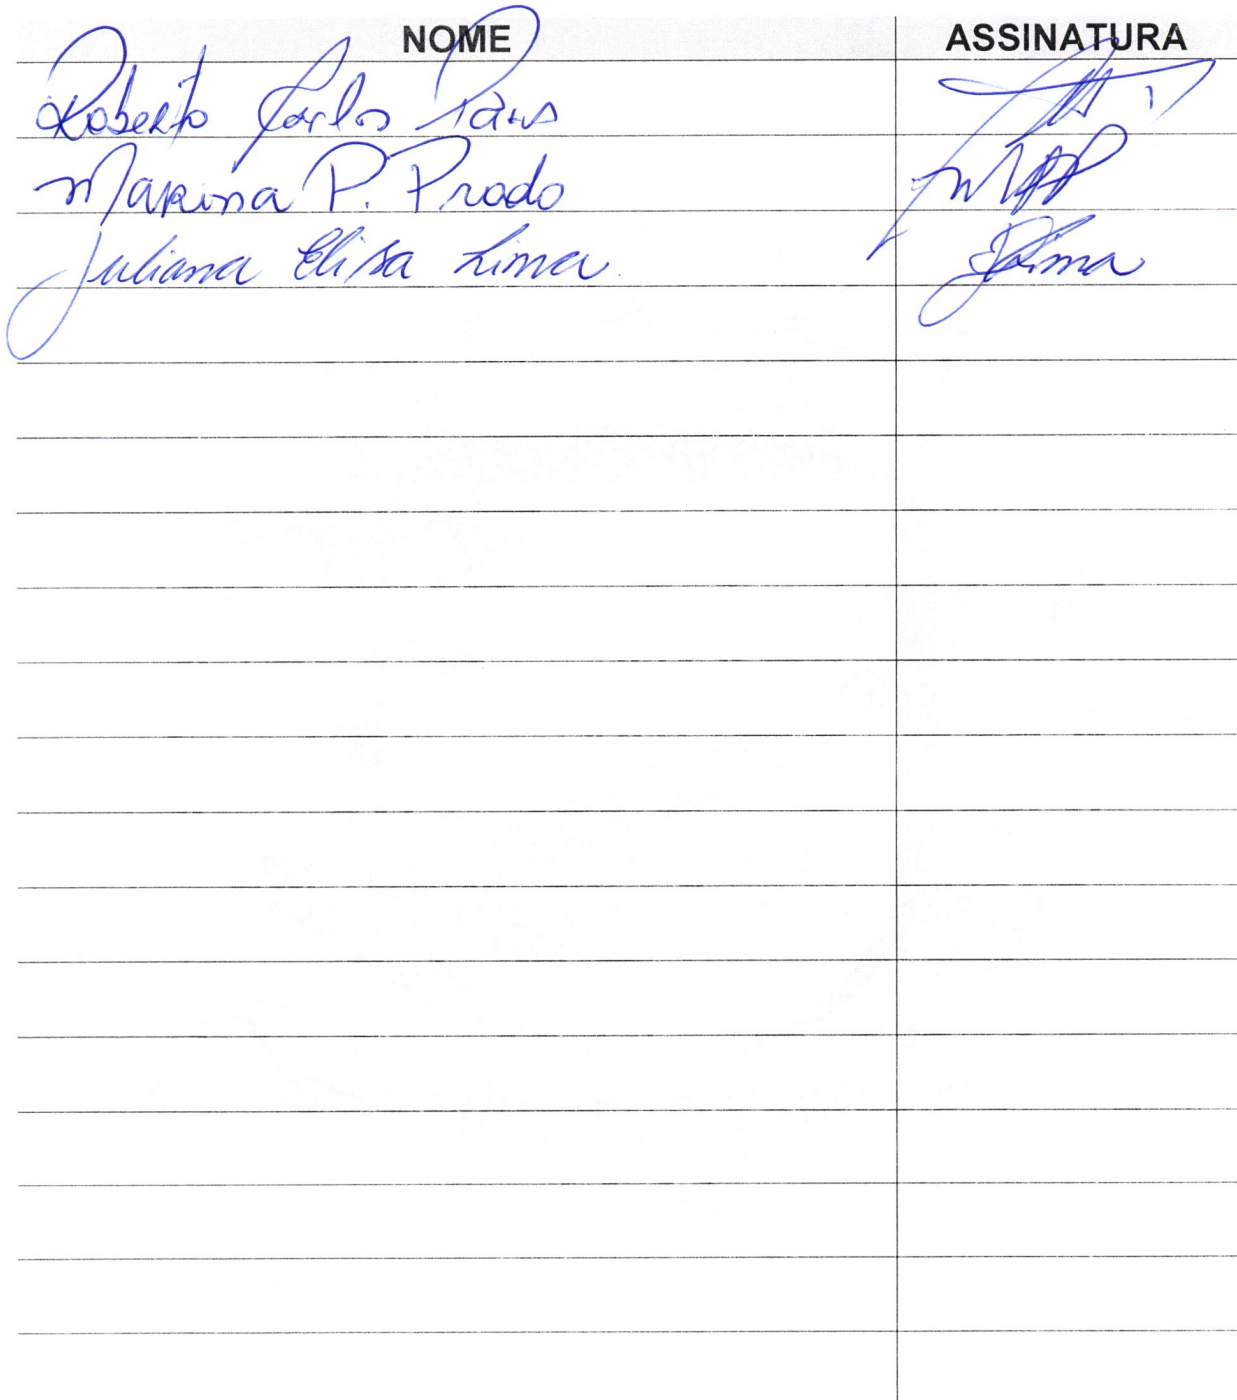 NOME ASSINATURA
Roberto Carlos
Marina P. Prado
Juliana Elisa Lima JLima